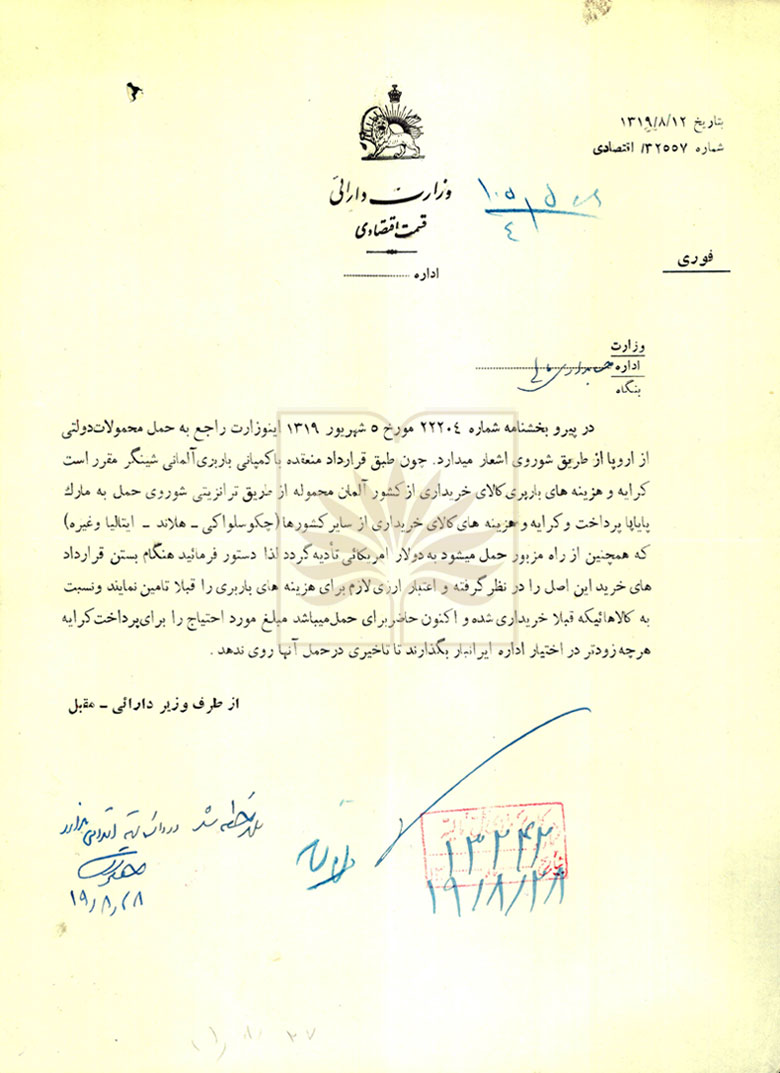 بتاریخ ۱۳۱۹/۸/۱۲
شماره ۳۲۵۵۷/ اقتصادی
وزارت دارائی
قسمت اقتصادی
اداره
فوری
وزارت
اداره حسابداری کل
بنگاه
در پیرو بخشنامه شماره ۲۲۲۰۴ مورخ ۵ شهریور ۱۳۱۹ اینوزارت راجع به حمل محمولات دولتی
از اروپا از طریق شوروی اشعار میدارد. چون طبق قرارداد منعقده باکمپانی باربری آلمانی شینگر مقرر است
کرایه و هزینه های باربری کالای خریداری از کشور آلمان محموله از طریق ترانزیتی شوروی حمل به مارك
پایاپا پرداخت و کرایه و هزینه های کالای خریداری از سایر کشورها (چکوسلواکی ـ هلاند ـ ایتالیا وغیره)
که همچنین از راه مزبور حمل میشود به دولار امریکائی تأدیه گردد لذا دستور فرمائید هنگام بستن قرارداد
های خرید این اصل را در نظر گرفته و اعتبار ارزی لازم برای هزینه های باربری را قبلا تامین نمایند ونسبت
به کالاهائیکه قبلا خریداری شده و اکنون حاضر برای حمل میباشد مبلغ مورد احتیاج را برای پرداخت کرایه
هرچه زودتر در اختیار اداره ایرانبار بگذارند تا تاخیری درحمل آنها روی ندهد .
از طرف وزیر دارائی ـ مقبل
۱۳۳۴۲
۱۹/۸/۲۸
ملاحظه شد
۱۹/۸/۲۸